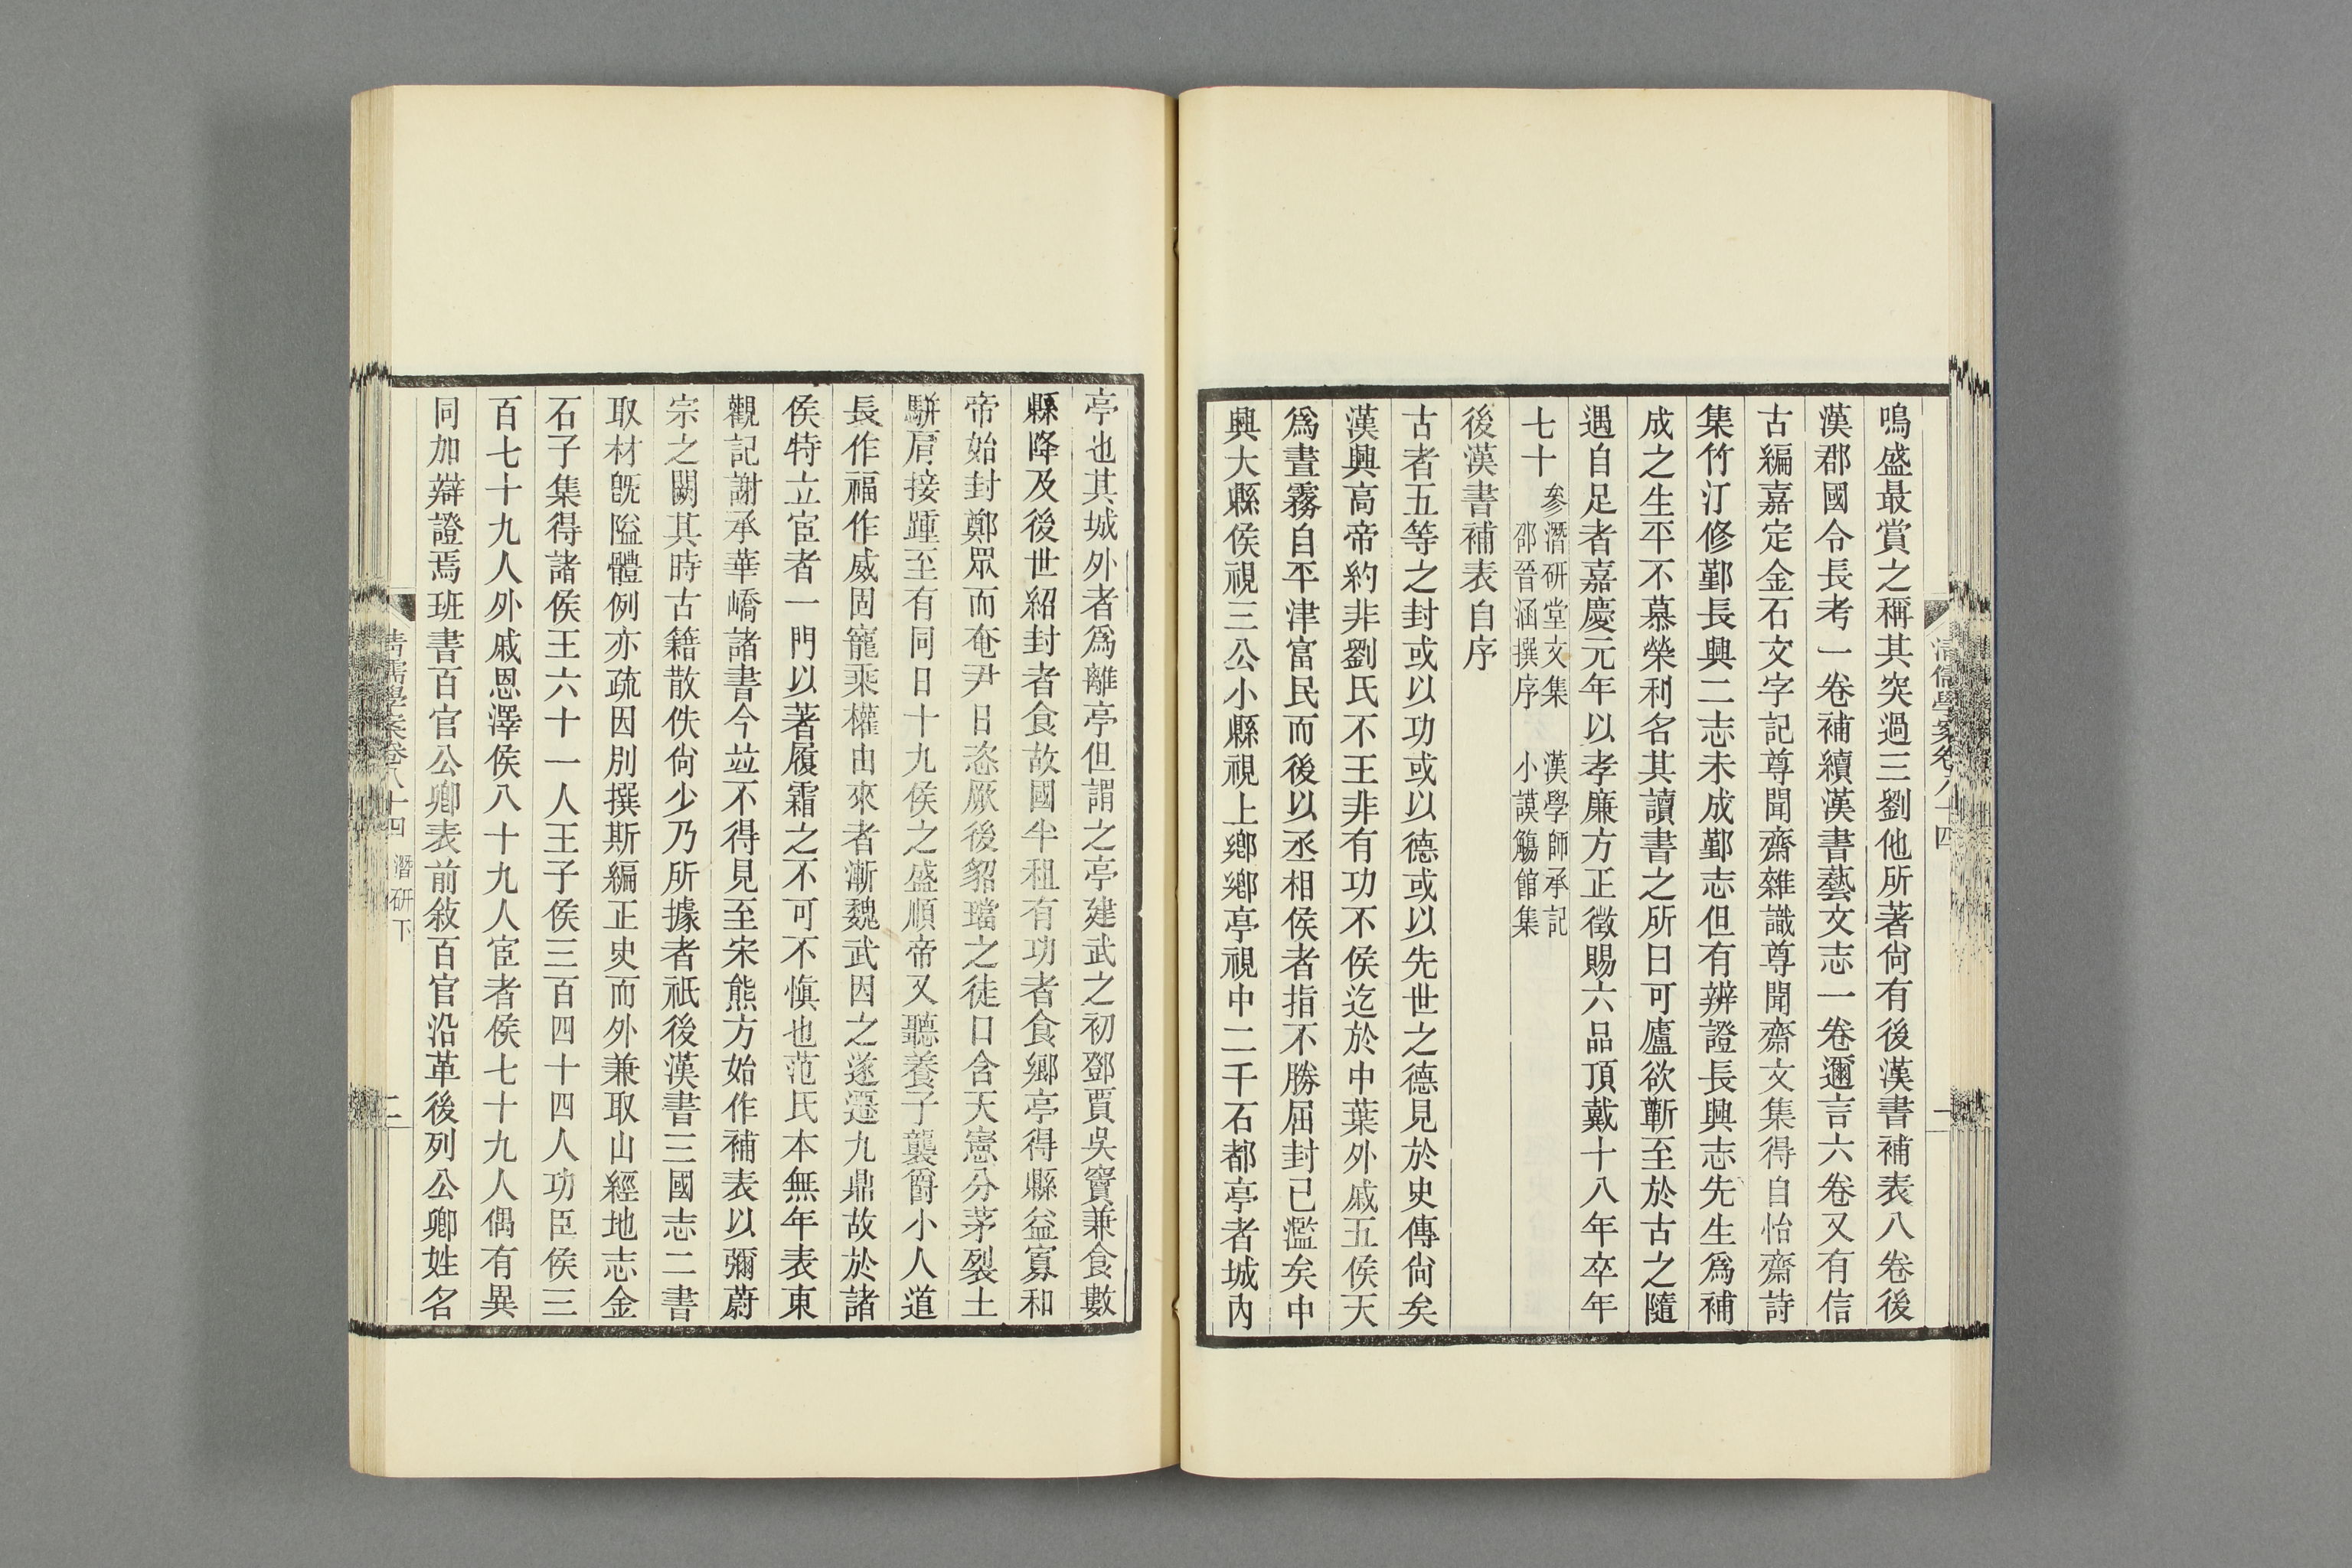 清儒學案卷八十四
鳴盛最賞之稱其突過三劉他所著尙有後漢書補表八卷後
漢郡國令長考一卷補續漢書藝文志一卷邇言六卷又有信
古編嘉定金石文字記尊聞齋雜識尊聞齋文集得自怡齋詩
集竹汀修鄞長興二志未成鄞志但有辨證長興志先生爲補
成之生平不慕榮利名其讀書之所曰可廬欲蘄至於古之隨
遇自足者嘉慶元年以孝廉方正徵賜六品頂戴十八年卒年
七十 參潛研堂文集 漢學師承記
邵晉涵撰序 小謨觴館集
後漢書補表自序
古者五等之封或以功或以德或以先世之德見於史傳尙矣
漢興高帝約非劉氏不王非有功不侯迄於中葉外戚五侯天
爲晝霧自平津富民而後以丞相侯者指不勝屈封已濫矣中
興大縣侯視三公小縣視上鄉鄉亭視中二千石都亭者城內
亭也其城外者爲離亭但謂之亭建武之初鄧賈吳竇兼食數
縣降及後世紹封者食故國半租有功者食鄉亭得縣益寡和
帝始封鄭眾而奄尹日恣厥後貂璫之徒口含天憲分茅裂土
駢肩接踵至有同日十九侯之盛順帝又聽養子襲爵小人道
長作福作威固寵乘權由來者漸魏武因之遂遷九鼎故於諸
侯特立宦者一門以著履霜之不可不愼也范氏本無年表東
觀記謝承華嶠諸書今竝不得見至宋熊方始作補表以彌蔚
宗之闕其時古籍散佚尙少乃所據者祇後漢書三國志二書
取材旣隘體例亦疏因別撰斯編正史而外兼取山經地志金
石子集得諸侯王六十一人王子侯三百四十四人功臣侯三
百七十九人外戚恩澤侯八十九人宦者侯七十九人偶有異
同加辯證焉班書百官公卿表前敘百官沿革後列公卿姓名
清儒學案卷八十四 潛研下 二